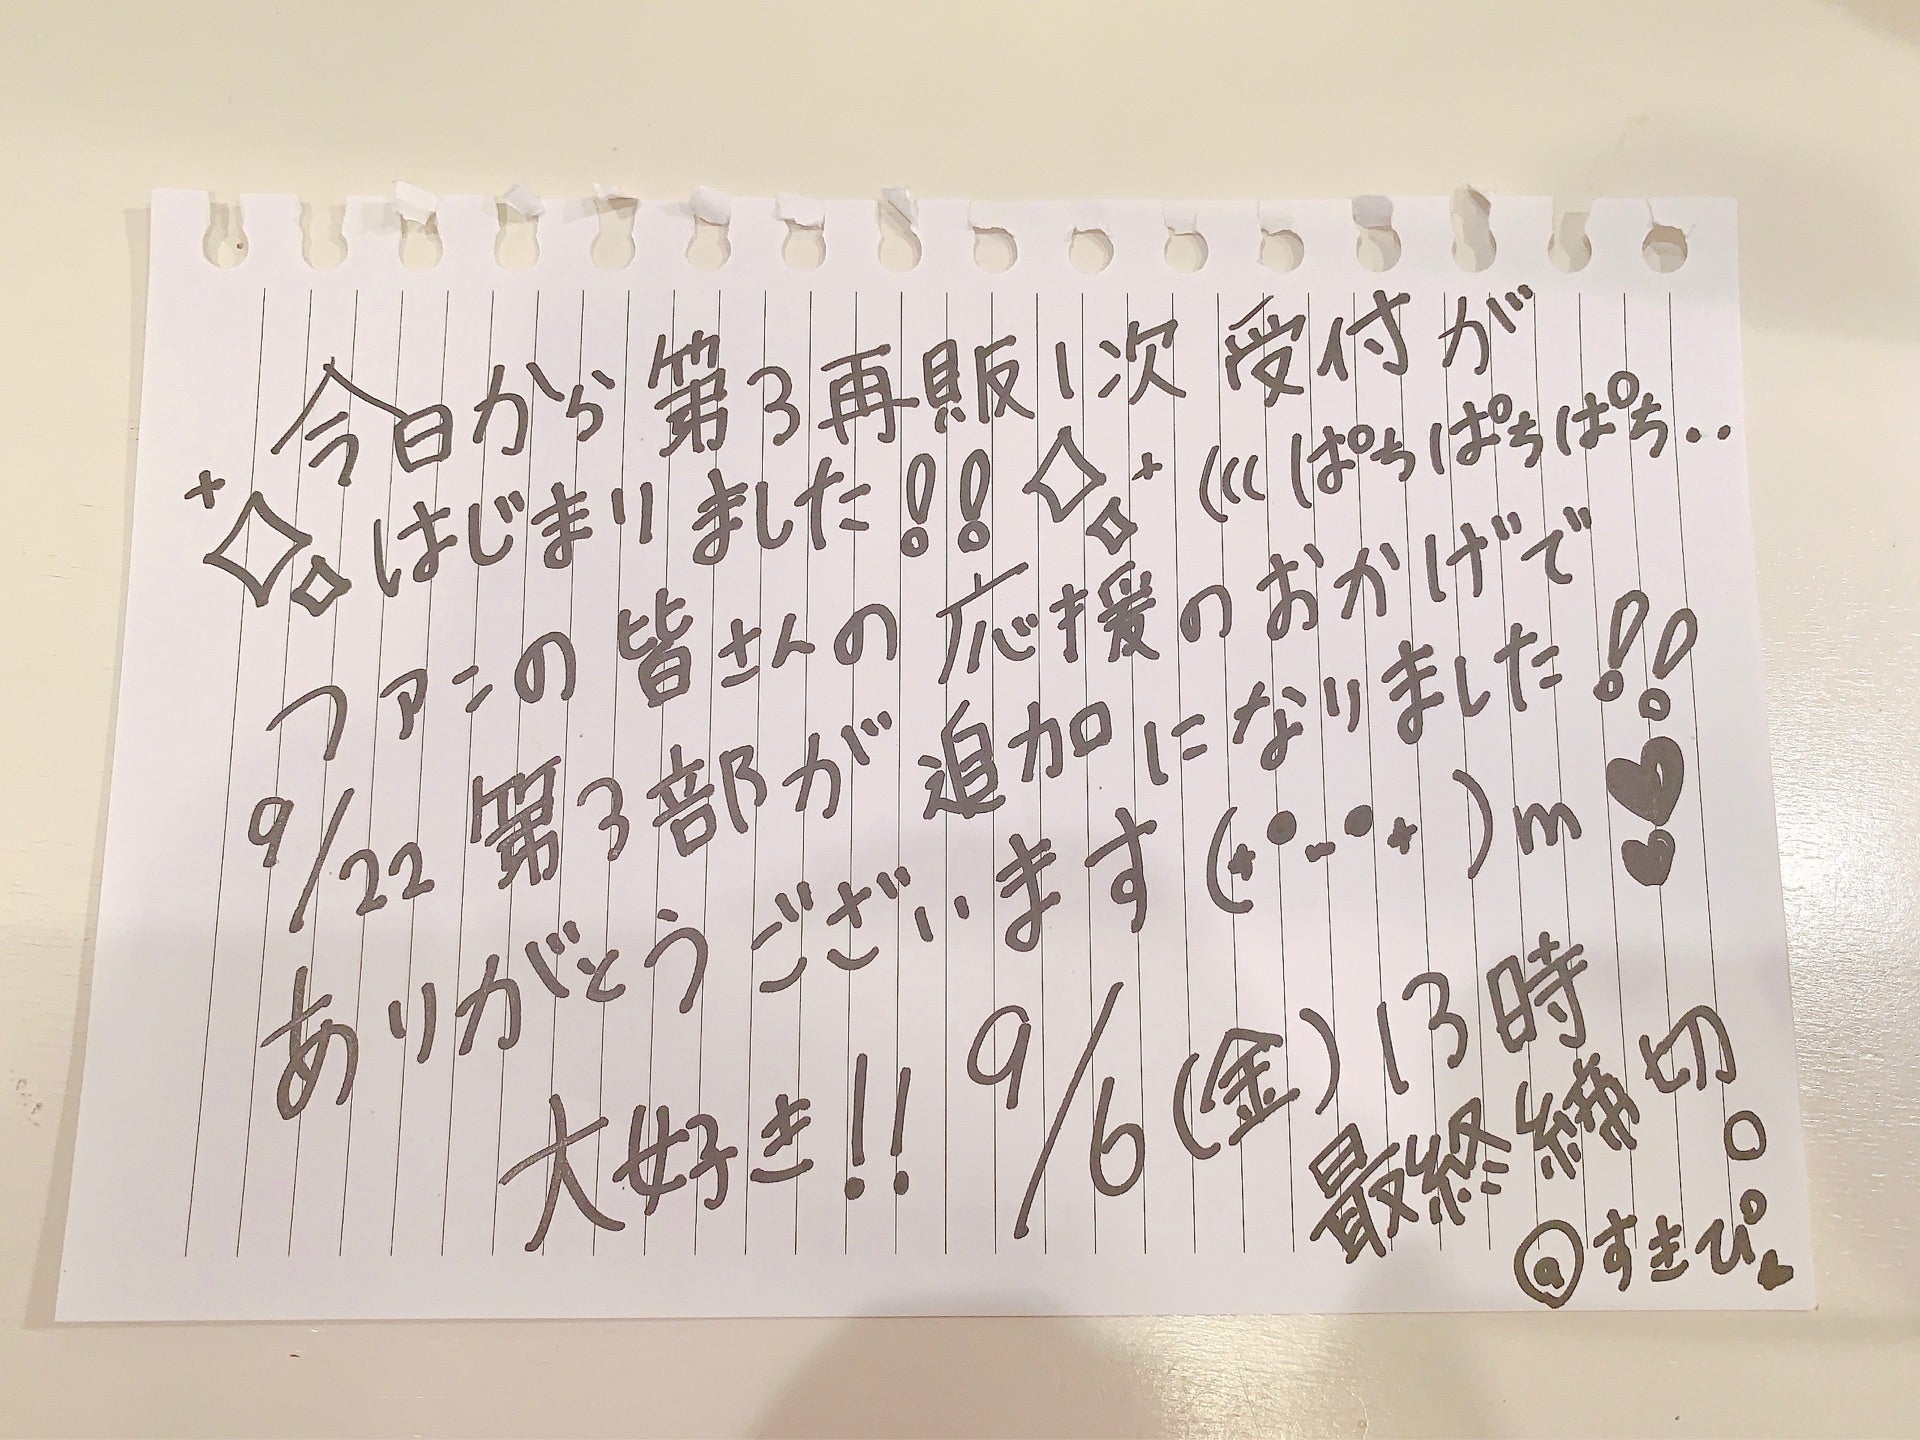 今日から第3再販1次受付が
はじまりました!! (((ぱちぱちぱち..
ファンの皆さんの応援のおかげで
9/22 第3部が追加になりました!!
ありがとうございます(*•-•*)m
大好き!! 9/6(金)13時
最終締切。
@すきぴ